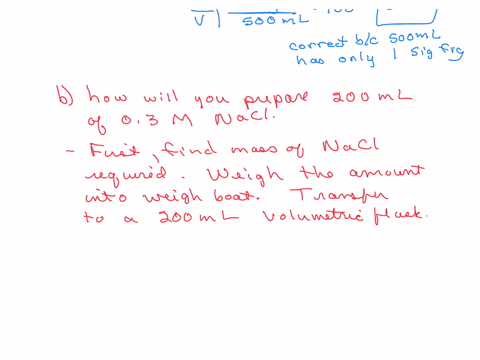 V 500 mL
correct b/c 500mL
has only 1 sig fig
b) how will you prepare 200 mL
of 0.3 M NaCl.
- First, find mass of NaCl
required. Weigh the amount
into weigh boat. Transfer
to a 200 mL volumetric flask.